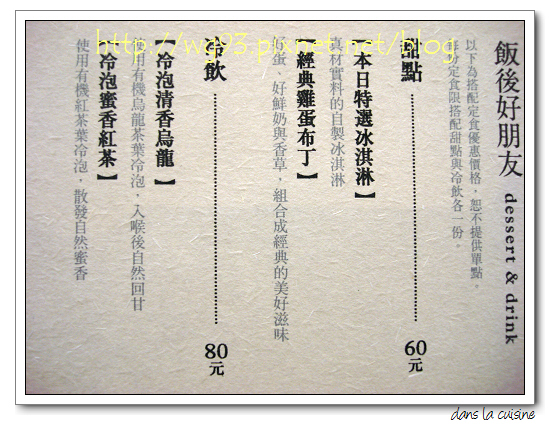 飯後好朋友 dessert & drink
以下為搭配定食優惠價格，恕不提供單點。
每份定食限搭配甜點與冷飲各一份。
甜點 60元
【本日特選冰淇淋】
真材實料的自製冰淇淋
【經典雞蛋布丁】
好蛋、好鮮奶與香草，組合成經典的美好滋味
冷飲 80元
【冷泡清香烏龍】
使用有機烏龍茶葉冷泡，入喉後自然回甘
【冷泡蜜香紅茶】
使用有機紅茶葉冷泡，散發自然蜜香
http://wg93.pixnet.net/blog
dans la cuisine